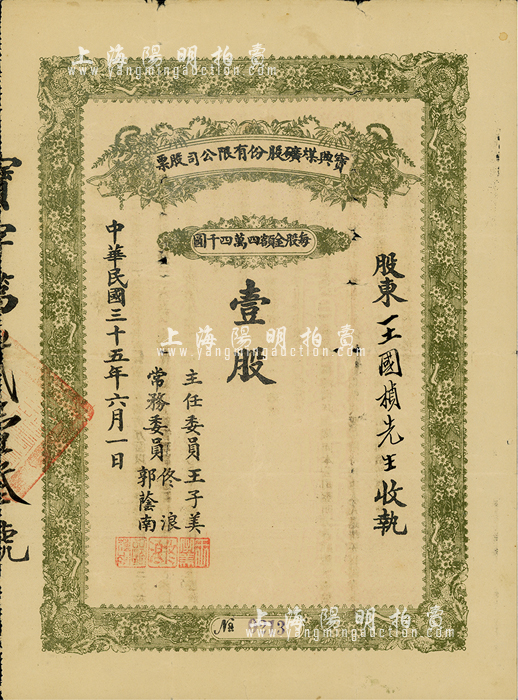 上海陽明拍賣
www.yangmingauction.com
寶興煤礦股份有限公司股票
每股金額四萬四千圓
股東王國楨先生收執
壹股
上海陽明拍賣
www.yangmingauction.com
主任委員王子美
常務委員佟浪
郭蔭南
中華民國三十五年六月一日
寶字第
號
№
上海陽明拍賣
www.yangmingauction.com